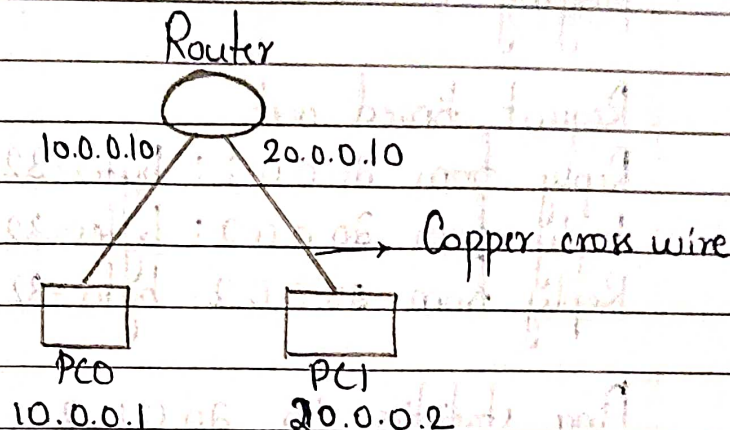 Router
10.0.0.10 20.0.0.10
Copper cross wire
PC0 PC1
10.0.0.1 20.0.0.2